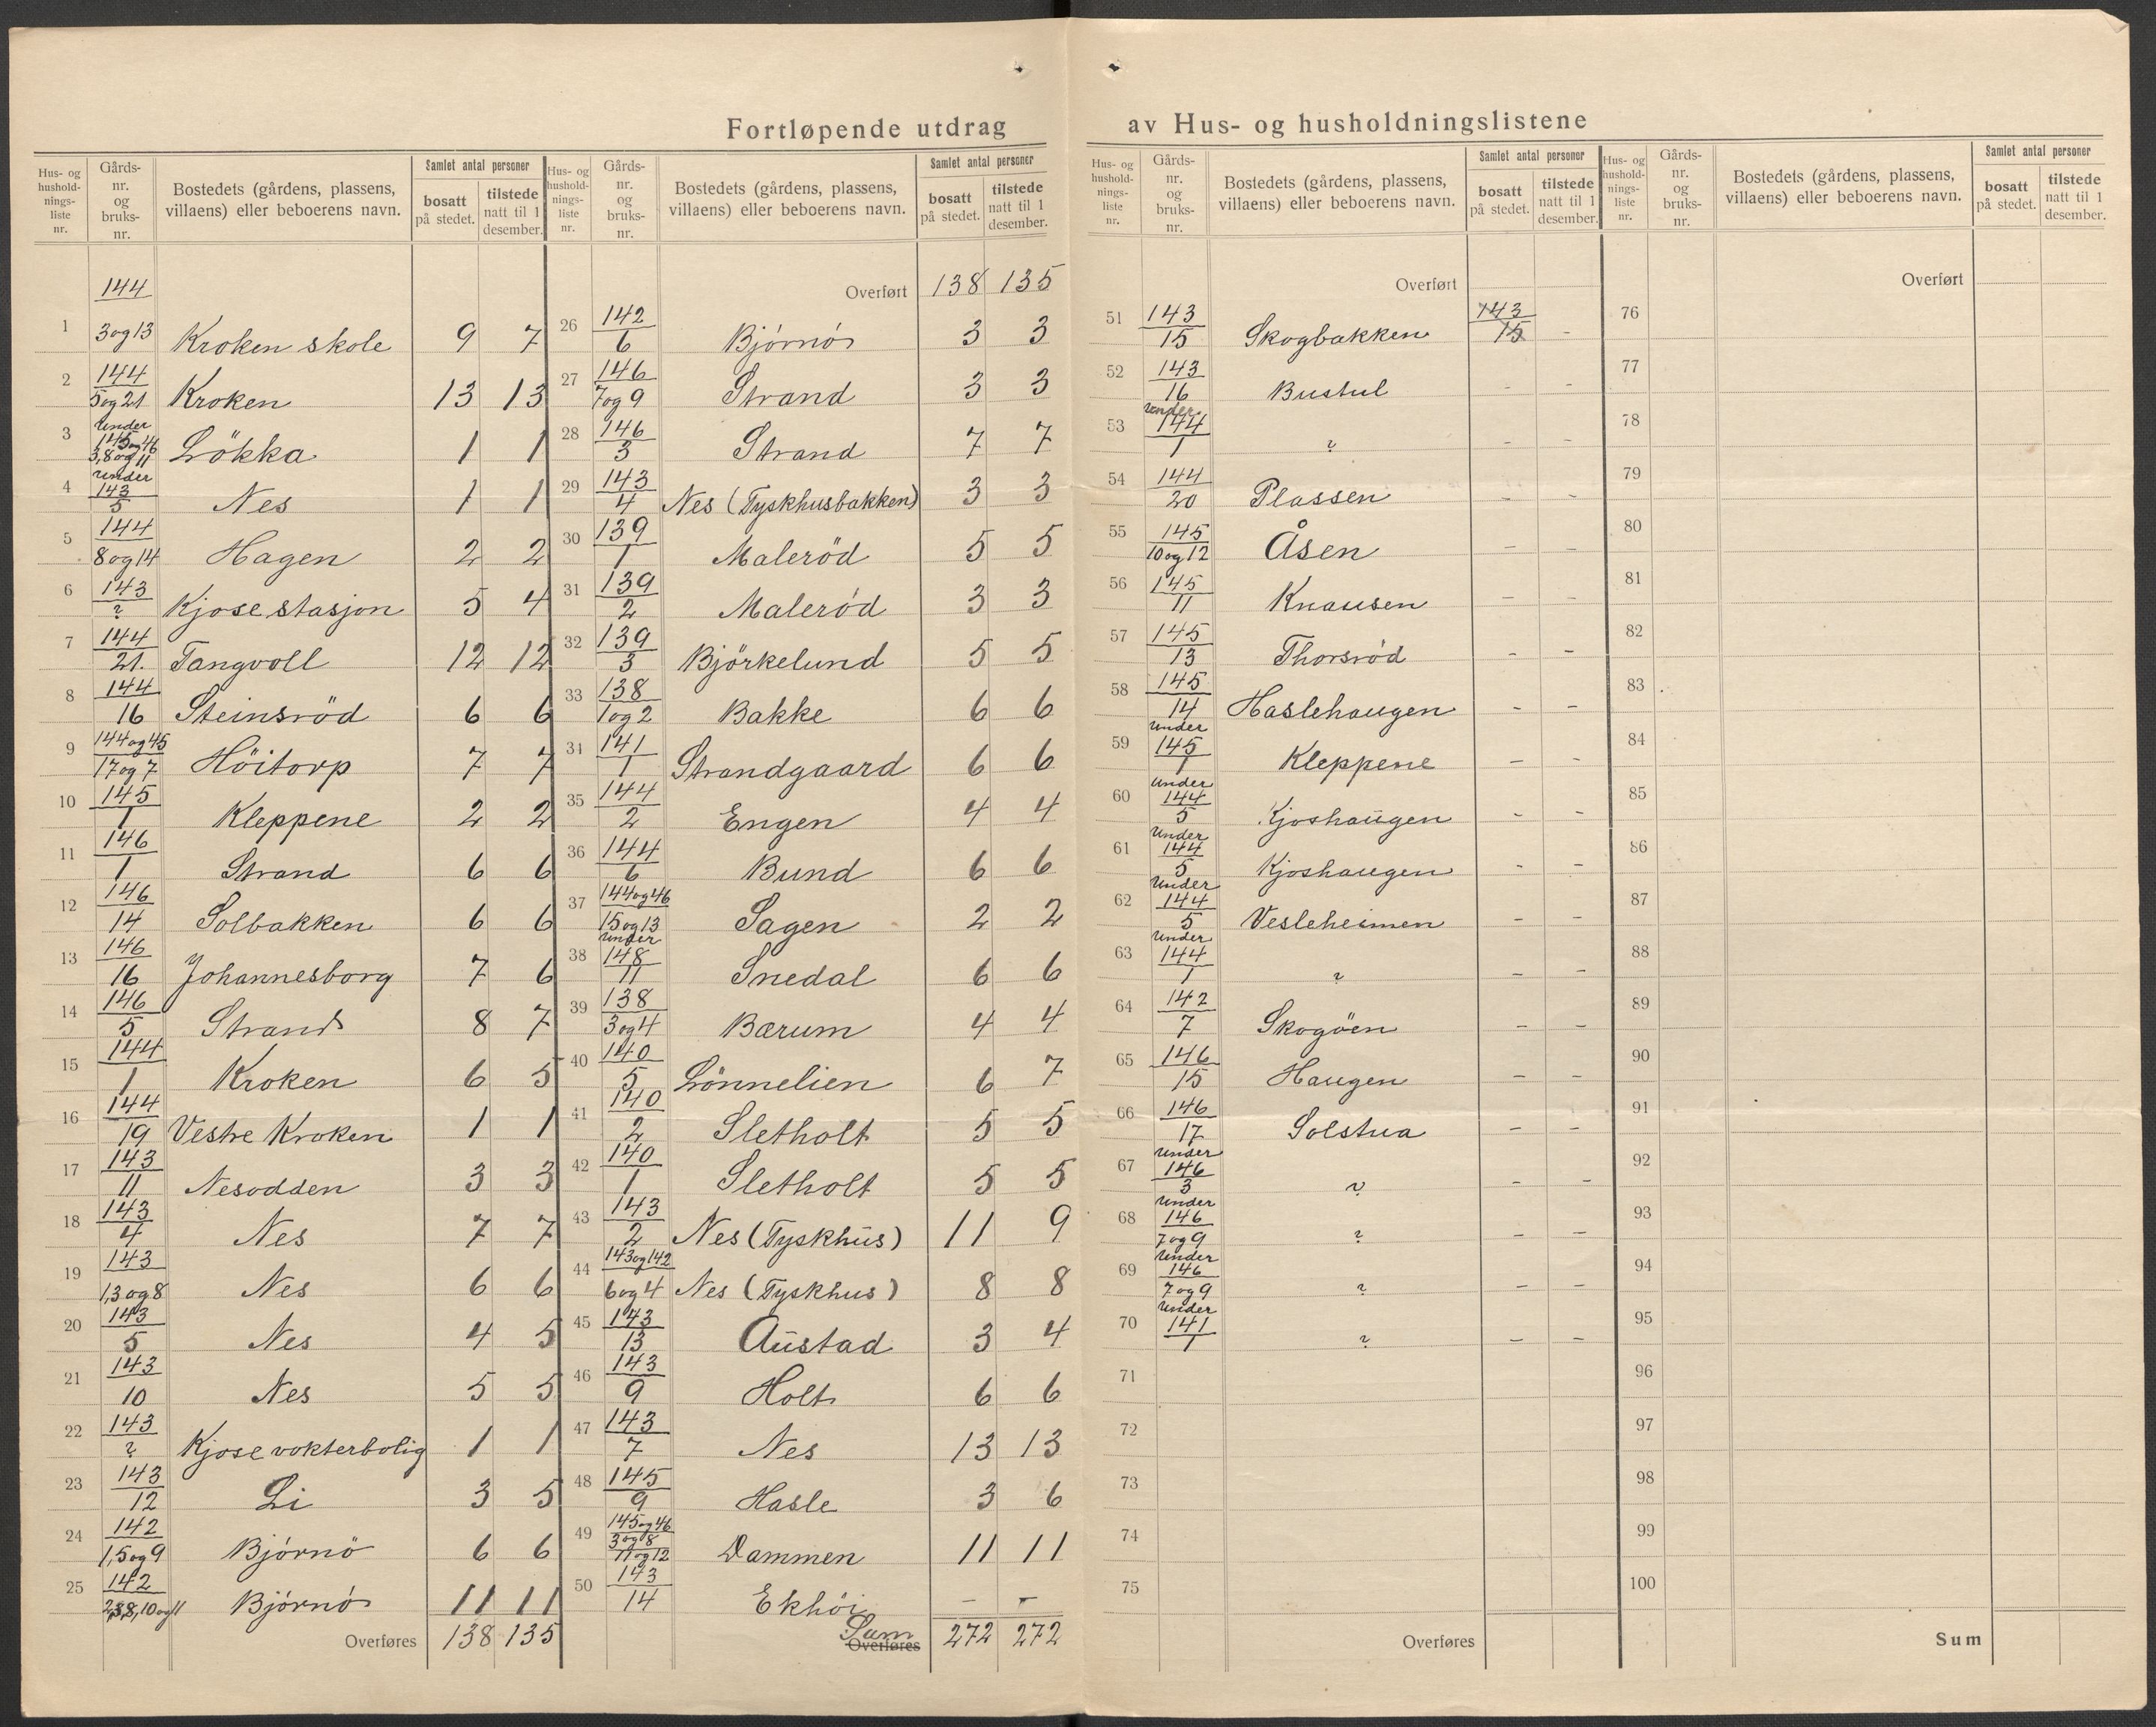 Fortløpende utdrag av Hus- og husholdningslistene
Hus- og husholdnings-liste nr. | Gårds-nr. og bruks-nr. | Bostedets (gårdens, plassens, villaens) eller beboerens navn. | Samlet antal personer | bosatt på stedet. | tilstede natt til 1 desember.
1 | 144 / 3 og 13 | Kroken skole | 9 | 7
2 | 144 / 5 og 21 | Kroken | 13 | 13
3 | under 145 og 46 / 3,8 og 11 | Lökka | 1 | 1
4 | under 143 / 5 | Nes | 1 | 1
5 | 144 / 8 og 14 | Hagen | 2 | 2
6 | 143 / ? | Kjose stasjon | 5 | 4
7 | 144 / 21. | Tangvoll | 12 | 12
8 | 144 / 16 | Steinsröd | 6 | 6
9 | 144 og 45 / 17 og 7 | Höitorp | 7 | 7
10 | 145 / 1 | Kleppene | 2 | 2
11 | 146 / 1 | Strand | 6 | 6
12 | 146 / 14 | Solbakken | 6 | 6
13 | 146 / 16 | Johannesborg | 7 | 6
14 | 146 / 5 | Strand | 8 | 7
15 | 144 / 1 | Kroken | 6 | 5
16 | 144 / 19 | Vestre Kroken | 1 | 1
17 | 143 / 11 | Nesodden | 3 | 3
18 | 143 / 4 | Nes | 7 | 7
19 | 143 / 1,3 og 8 | Nes | 6 | 6
20 | 143 / 5 | Nes | 4 | 5
21 | 143 / 10 | Nes | 5 | 5
22 | 143 / ? | Kjose vokterbolig | 1 | 1
23 | 143 / 12 | Li | 3 | 5
24 | 142 / 1,5 og 9 | Bjórnö | 6 | 6
25 | 142 / 2,3,8,10 og 11 | Bjórnó | 11 | 11
Overføres | 138 | 135
Hus- og husholdnings-liste nr. | Gårds-nr. og bruks-nr. | Bostedets (gårdens, plassens, villaens) eller beboerens navn. | Samlet antal personer | bosatt på stedet. | tilstede natt til 1 desember.
Overført | 138 | 135
26 | 142 / 6 | Bjórnó | 3 | 3
27 | 146 / 7 og 9 | Strand | 3 | 3
28 | 146 / 3 | Strand | 7 | 7
29 | 143 / 4 | Nes (Tyskhusbakken) | 3 | 3
30 | 139 / 1 | Maleröd | 5 | 5
31 | 139 / 2 | Maleród | 3 | 3
32 | 139 / 3 | Björkelund | 5 | 5
33 | 138 / 1 og 2 | Bakke | 6 | 6
34 | 141 / 1 | Strandgaard | 6 | 6
35 | 144 / 2 | Engen | 4 | 4
36 | 144 / 6 | Bund | 6 | 6
37 | 144 og 46 / 15 og 13 | Sagen | 2 | 2
38 | under 148 / 11 | Snedal | 6 | 6
39 | 138 / 3 og 4 | Bærum | 4 | 4
40 | 140 / 5 | Lönnelien | 6 | 7
41 | 140 / 2 | Sletholt | 5 | 5
42 | 140 / 1 | Sletholt | 5 | 5
43 | 143 / 2 | Nes (Tyskhus) | 11 | 9
44 | 143 og 142 / 6 og 4 | Nes (Tyskhus) | 8 | 8
45 | 143 / 13 | Austad | 3 | 4
46 | 143 / 9 | Holt | 6 | 6
47 | 143 / 7 | Nes | 13 | 13
48 | 145 / 9 | Hasle | 3 | 6
49 | 145 og 46 / 3 og 8 / 11 og 12 | Dammen | 11 | 11
50 | 143 / 14 | Ekhöi | – | –
Sum Overføres | 272 | 272
Hus- og husholdnings-liste nr. | Gårds-nr. og bruks-nr. | Bostedets (gårdens, plassens, villaens) eller beboerens navn. | Samlet antal personer | bosatt på stedet. | tilstede natt til 1 desember.
Overført
51 | 143 / 15 | Skogbakken | 143 / 15 | -
52 | 143 / 16 | Bustul | - | -
53 | under 144 / 1 | ? | - | -
54 | 144 / 20 | Plassen | - | -
55 | 145 / 10 og 12 | Åsen | - | -
56 | 145 / 11 | Knausen | - | -
57 | 145 / 13 | Thorsród | - | -
58 | 145 / 14 | Haslehaugen | - | -
59 | under 145 / 1 | Kleppene | - | -
60 | under 144 / 5 | Kjoshaugen | - | -
61 | under 144 / 5 | Kjoshaugen | - | -
62 | under 144 / 5 | Vesleheimen | - | -
63 | under 144 / 1 | ? | - | -
64 | 142 / 7 | Skogöen | - | -
65 | 146 / 15 | Haugen | - | -
66 | 146 / 17 | Solstua | - | -
67 | under 146 / 3 | ? | - | -
68 | under 146 / 7 og 9 | ? | - | -
69 | under 146 / 7 og 9 | ? | - | -
70 | under 141 / 1 | ? | - | -
71
72
73
74
75
Overføres
Hus- og husholdnings-liste nr. | Gårds-nr. og bruks-nr. | Bostedets (gårdens, plassens, villaens) eller beboerens navn. | Samlet antal personer | bosatt på stedet. | tilstede natt til 1 desember.
Overført
76
77
78
79
80
81
82
83
84
85
86
87
88
89
90
91
92
93
94
95
96
97
98
99
100
Sum